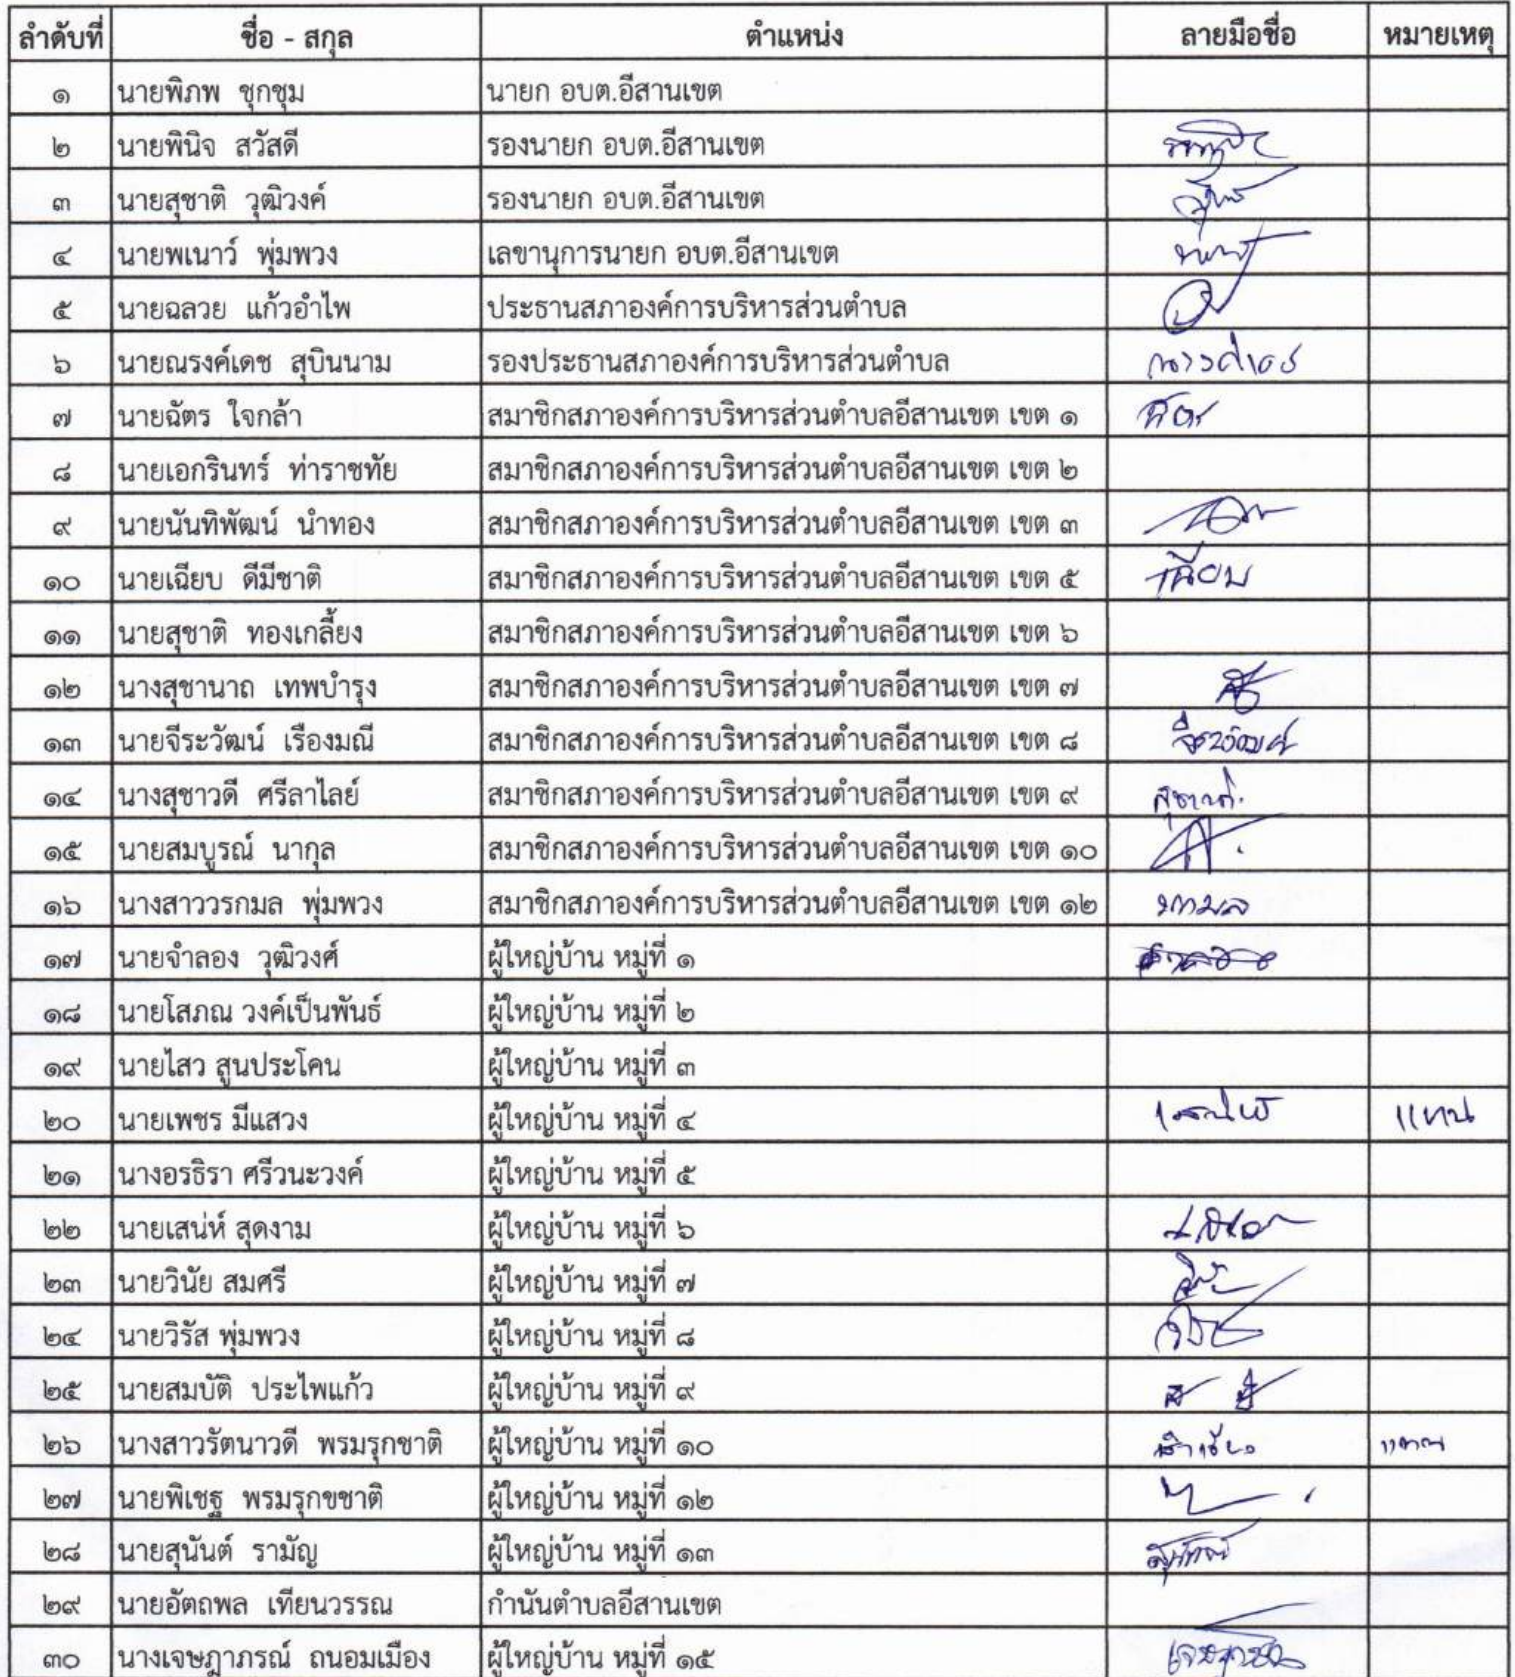 ลำดับที่ ชื่อ - สกุล ตำแหน่ง ลายมือชื่อ หมายเหตุ
๑ นายพิภพ ชุกชุม นายก อบต.อีสานเขต
๒ นายพินิจ สวัสดี รองนายก อบต.อีสานเขต
๓ นายสุชาติ วุฒิวงค์ รองนายก อบต.อีสานเขต
๔ นายพเนาว์ พุ่มพวง เลขานุการนายก อบต.อีสานเขต
๕ นายฉลวย แก้วอำไพ ประธานสภาองค์การบริหารส่วนตำบล
๖ นายณรงค์เดช สุบินนาม รองประธานสภาองค์การบริหารส่วนตำบล ณรงค์เดช
๗ นายฉัตร ใจกล้า สมาชิกสภาองค์การบริหารส่วนตำบลอีสานเขต เขต ๑ ฉัตร
๘ นายเอกรินทร์ ท่าราชทัย สมาชิกสภาองค์การบริหารส่วนตำบลอีสานเขต เขต ๒
๙ นายนันทิพัฒน์ นำทอง สมาชิกสภาองค์การบริหารส่วนตำบลอีสานเขต เขต ๓
๑๐ นายเฉียบ ดีมีชาติ สมาชิกสภาองค์การบริหารส่วนตำบลอีสานเขต เขต ๕ เฉียบ
๑๑ นายสุชาติ ทองเกลี้ยง สมาชิกสภาองค์การบริหารส่วนตำบลอีสานเขต เขต ๖
๑๒ นางสุชานาถ เทพบำรุง สมาชิกสภาองค์การบริหารส่วนตำบลอีสานเขต เขต ๗
๑๓ นายจีระวัฒน์ เรืองมณี สมาชิกสภาองค์การบริหารส่วนตำบลอีสานเขต เขต ๘ จีระวัฒน์
๑๔ นางสุชาวดี ศรีลาไลย์ สมาชิกสภาองค์การบริหารส่วนตำบลอีสานเขต เขต ๙ สุชาวดี
๑๕ นายสมบูรณ์ นากุล สมาชิกสภาองค์การบริหารส่วนตำบลอีสานเขต เขต ๑๐
๑๖ นางสาววรกมล พุ่มพวง สมาชิกสภาองค์การบริหารส่วนตำบลอีสานเขต เขต ๑๒ วรกมล
๑๗ นายจำลอง วุฒิวงศ์ ผู้ใหญ่บ้าน หมู่ที่ ๑
๑๘ นายโสภณ วงค์เป็นพันธ์ ผู้ใหญ่บ้าน หมู่ที่ ๒
๑๙ นายไสว สูนประโคน ผู้ใหญ่บ้าน หมู่ที่ ๓
๒๐ นายเพชร มีแสวง ผู้ใหญ่บ้าน หมู่ที่ ๔ แทน
๒๑ นางอรธิรา ศรีวนะวงค์ ผู้ใหญ่บ้าน หมู่ที่ ๕
๒๒ นายเสน่ห์ สุดงาม ผู้ใหญ่บ้าน หมู่ที่ ๖
๒๓ นายวินัย สมศรี ผู้ใหญ่บ้าน หมู่ที่ ๗
๒๔ นายวิรัส พุ่มพวง ผู้ใหญ่บ้าน หมู่ที่ ๘
๒๕ นายสมบัติ ประไพแก้ว ผู้ใหญ่บ้าน หมู่ที่ ๙
๒๖ นางสาวรัตนาวดี พรมรุกชาติ ผู้ใหญ่บ้าน หมู่ที่ ๑๐ แทน
๒๗ นายพิเชฐ พรมรุกขชาติ ผู้ใหญ่บ้าน หมู่ที่ ๑๒
๒๘ นายสุนันต์ รามัญ ผู้ใหญ่บ้าน หมู่ที่ ๑๓
๒๙ นายอัตถพล เทียนวรรณ กำนันตำบลอีสานเขต
๓๐ นางเจษฎาภรณ์ ถนอมเมือง ผู้ใหญ่บ้าน หมู่ที่ ๑๕